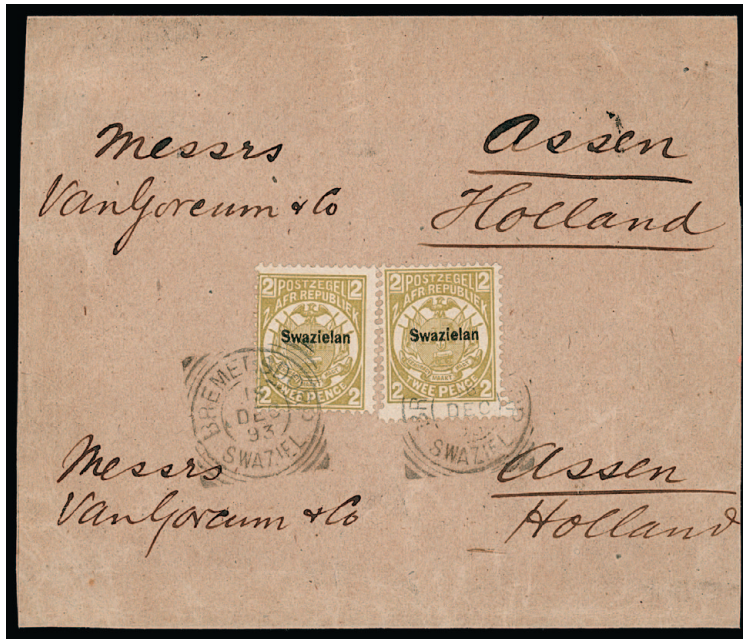 Messrs
Van Gorcum & Co
Assen
Holland
2 POSTZEGEL 2
Z. AFR. REPUBLIEK
Swazielan
2 TWEE PENCE 2
2 POSTZEGEL 2
Z. AFR. REPUBLIEK
Swazielan
2 TWEE PENCE 2
BREMERSDO
15
DEC
93
SWAZIEL
BR
DEC
SWAZIEL
Messrs
Van Gorcum & Co
Assen
Holland